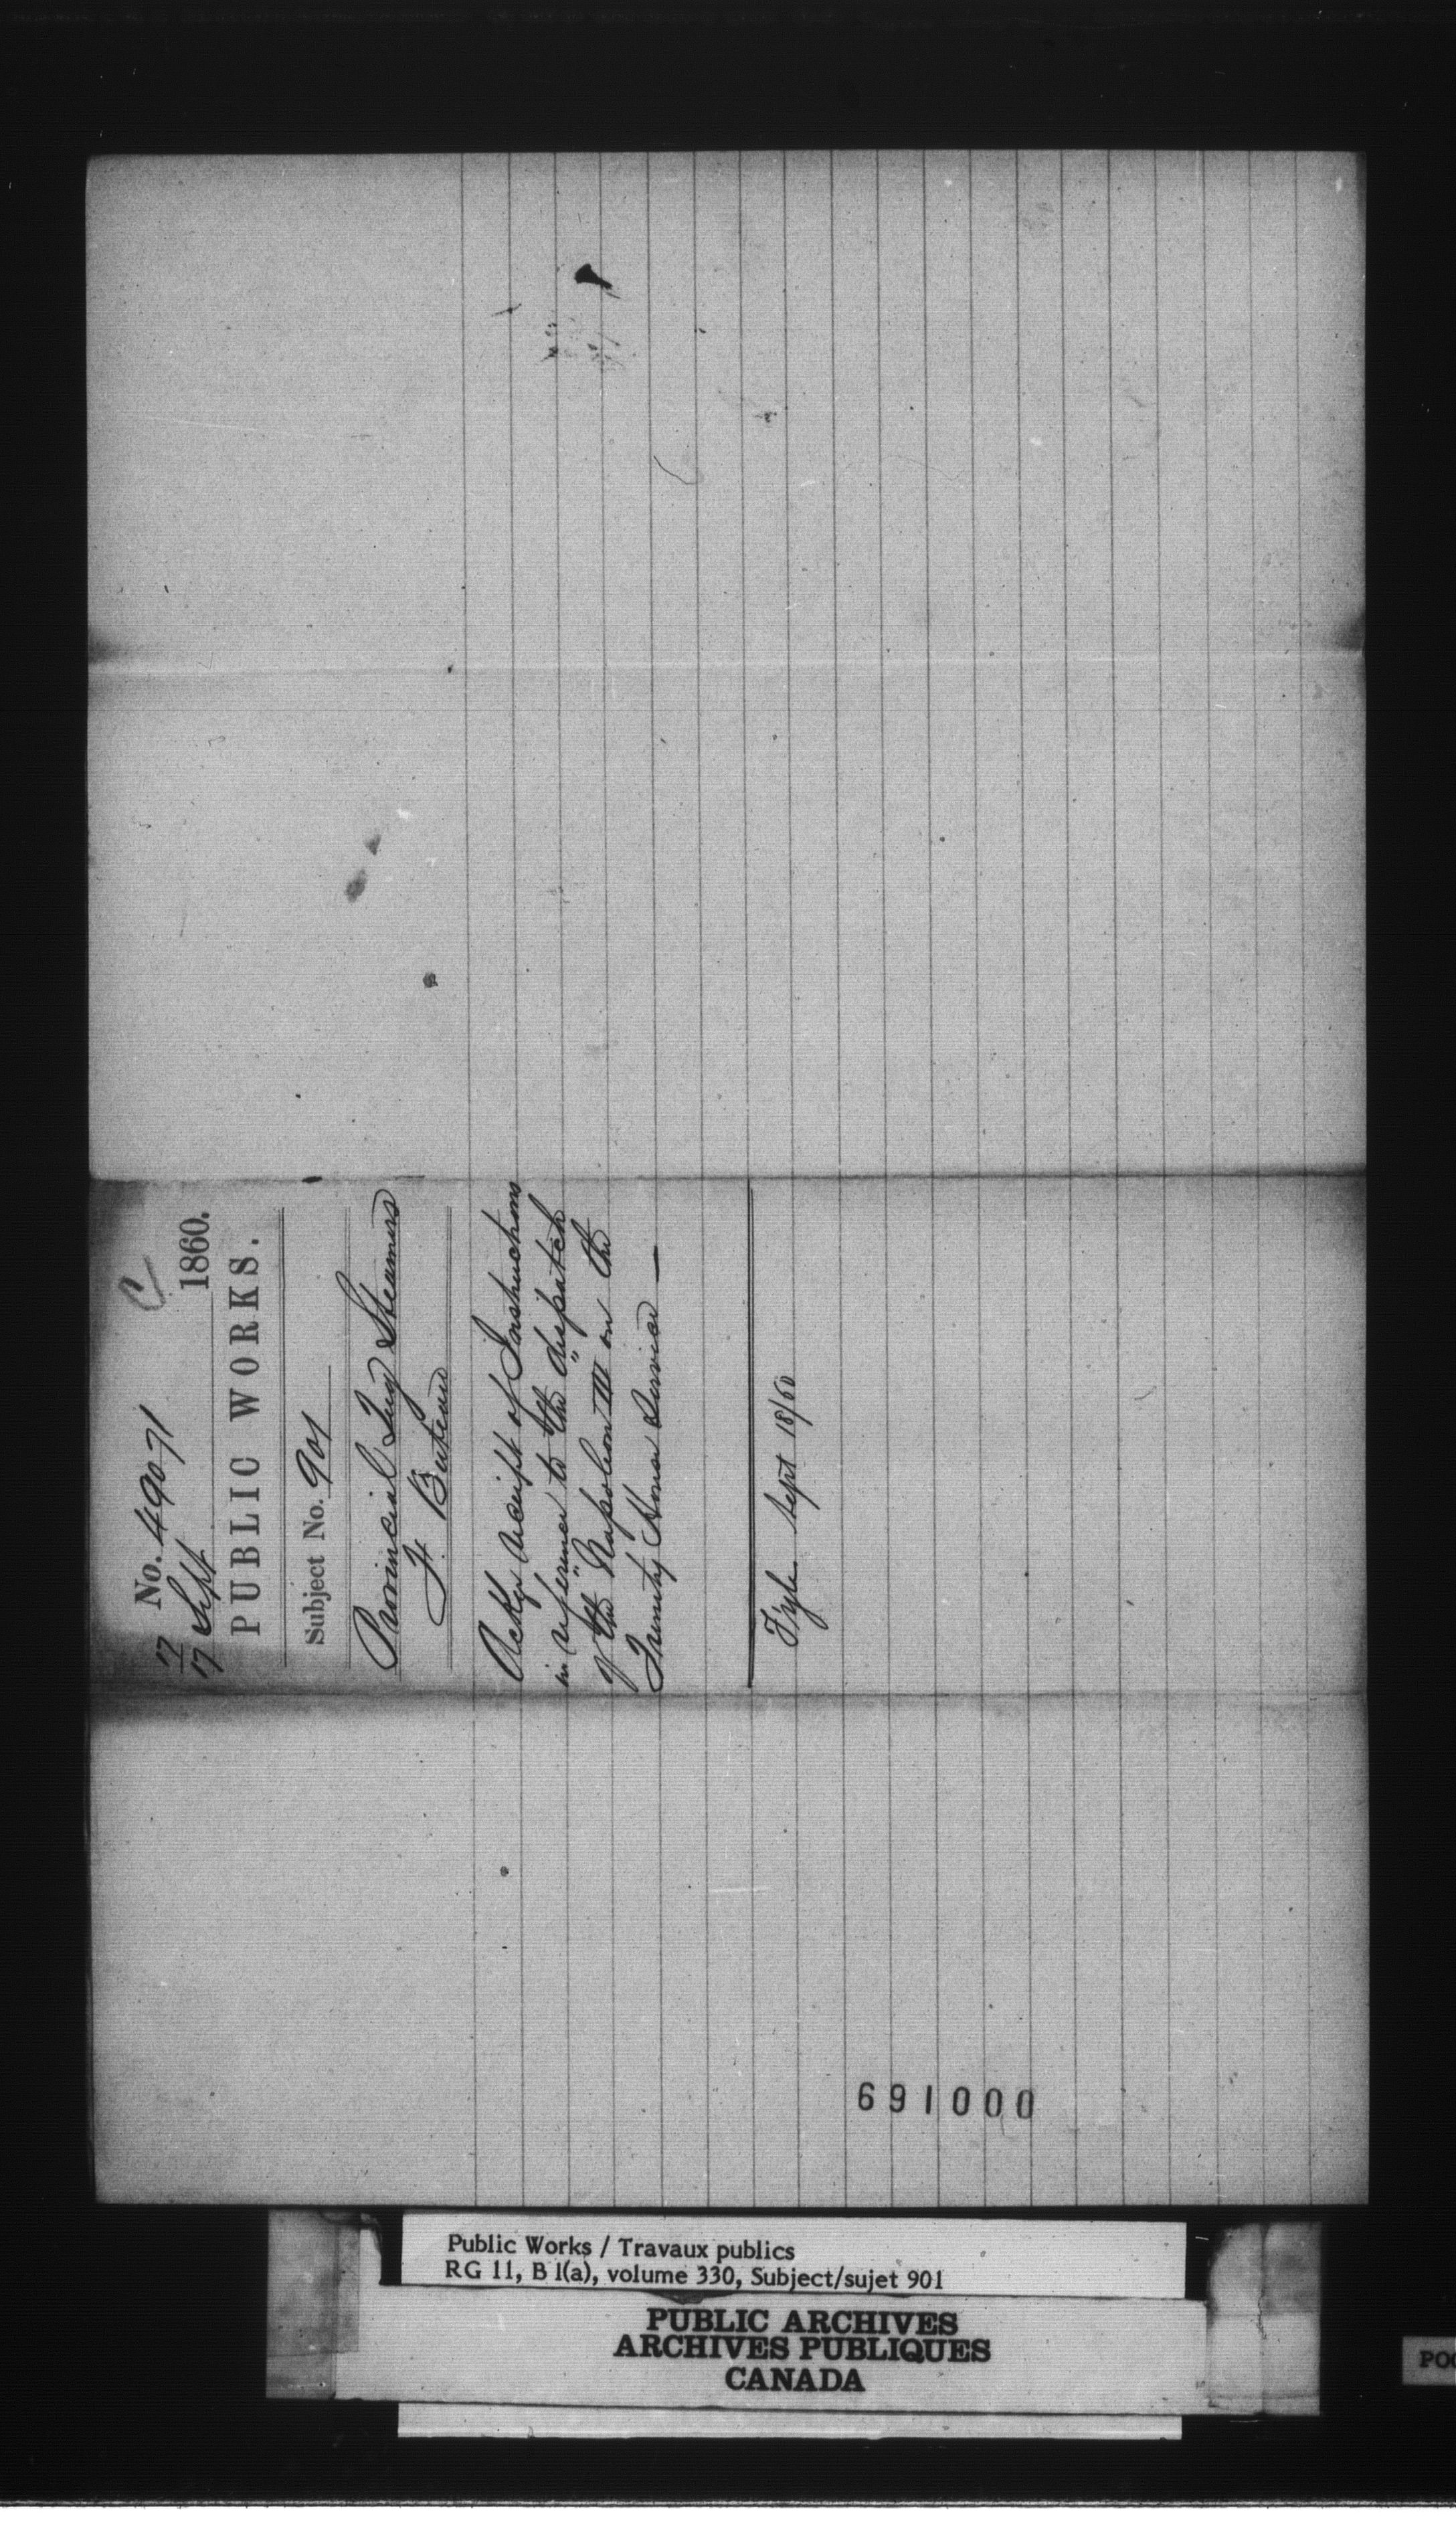 C
17 No. 49071
17 Sept 1860.
PUBLIC WORKS.
Subject No. 901
Provincial Tug Steamers
F. Buteau
Ackgs receipt of Instructions
in reference to the dispatch
of the "Napoleon III" on the
Trinity House Service —
Fyle Sept 18/60
691000
Public Works / Travaux publics
RG 11, B 1(a), volume 330, Subject/sujet 901
PUBLIC ARCHIVES
ARCHIVES PUBLIQUES
CANADA